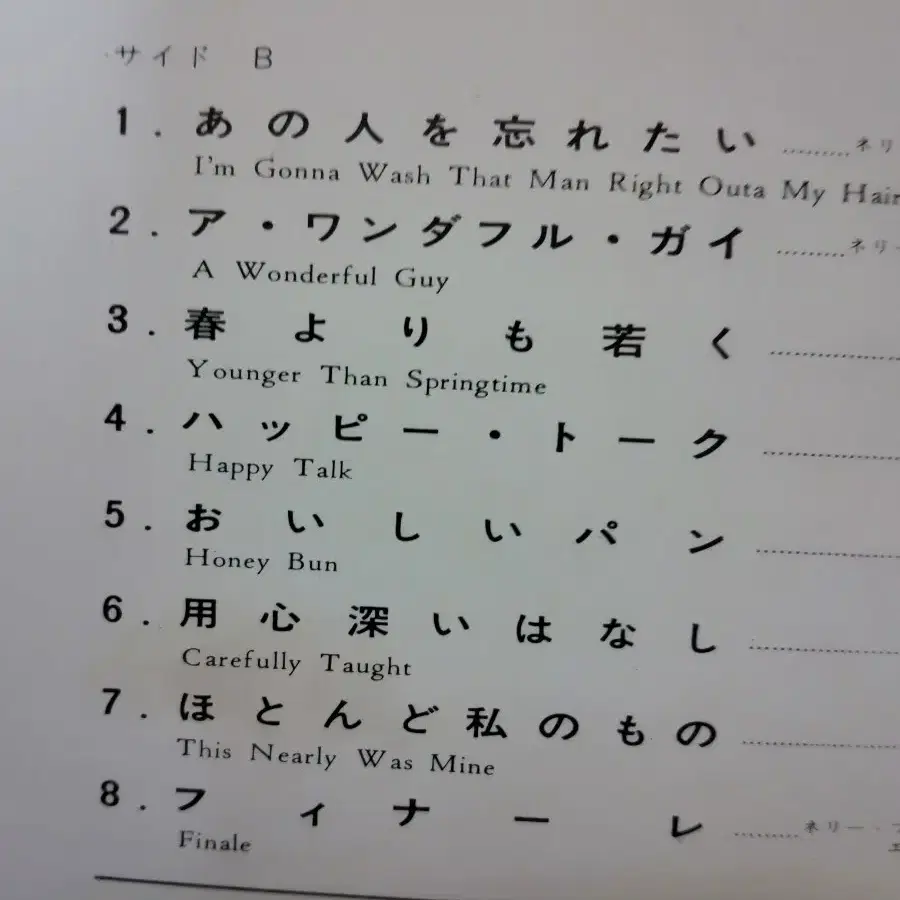 サイド B
1. あの人を忘れたい ………ネリ
I'm Gonna Wash That Man Right Outa My Hair
2. ア・ワンダフル・ガイ ………ネリー
A Wonderful Guy
3. 春よりも若く
Younger Than Springtime
4. ハッピー・トーク
Happy Talk
5. おいしいパン
Honey Bun
6. 用心深いはなし
Carefully Taught
7. ほとんど私のもの
This Nearly Was Mine
8. フィナーレ ………ネリー・フ
エ
Finale